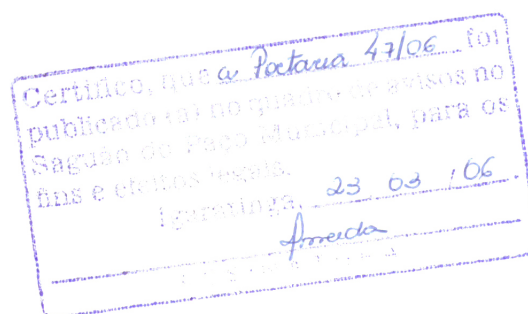 Certifico, que a Portaria 47/06 foi
publicado (a) no quadro de avisos no
Saguão do Paço Municipal, para os
fins e efeitos legais.
Igaratinga, 23 03 / 06
Almeida